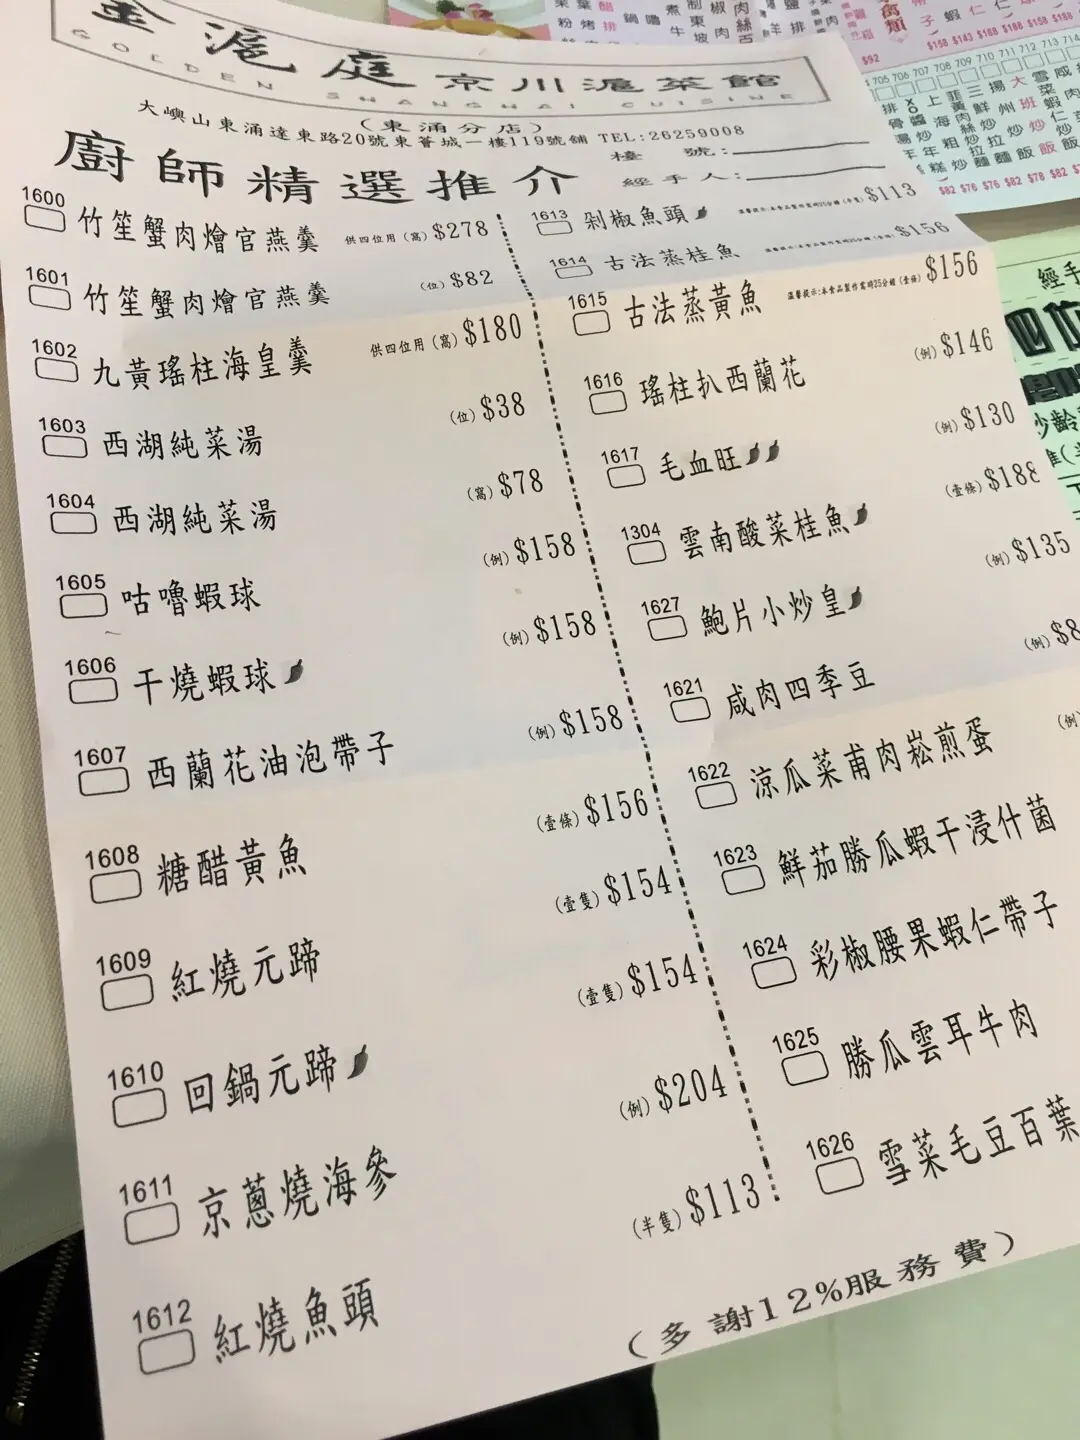 金滬庭京川滬菜館
GOLDEN SHANGHAI CUISINE
(東涌分店)
大嶼山東涌達東路20號東薈城一樓119號舖 TEL:26259008
廚師精選推介
檯號:
經手人:
1600 竹笙蟹肉燴官燕羹 供四位用(窩) $278
1601 竹笙蟹肉燴官燕羹 (位) $82
1602 九黃瑤柱海皇羹 供四位用(窩) $180
1603 西湖純菜湯 (位) $38
1604 西湖純菜湯 (窩) $78
1605 咕嚕蝦球 (例) $158
1606 干燒蝦球 (例) $158
1607 西蘭花油泡帶子 (例) $158
1608 糖醋黃魚 (壹條) $156
1609 紅燒元蹄 (壹隻) $154
1610 回鍋元蹄 (壹隻) $154
1611 京蔥燒海參 (例) $204
1612 紅燒魚頭 (半隻) $113
1613 剁椒魚頭 $113
1614 古法蒸桂魚 $156
1615 古法蒸黃魚 溫馨提示:本食品製作需時25分鐘(壹條) $156
1616 瑤柱扒西蘭花 (例) $146
1617 毛血旺 (例) $130
1304 雲南酸菜桂魚 (壹條) $188
1627 鮑片小炒皇 (例) $135
1621 咸肉四季豆 (例) $8
1622 涼瓜菜甫肉崧煎蛋 (例)
1623 鮮茄勝瓜蝦干浸什菌
1624 彩椒腰果蝦仁帶子
1625 勝瓜雲耳牛肉
1626 雪菜毛豆百葉
(多謝12%服務費)
$92
$158 $143 $168 $188 $158 $158
705 706 707 708 709 710 711 712 713 714
$82 $76 $76 $82 $78 $82
經手